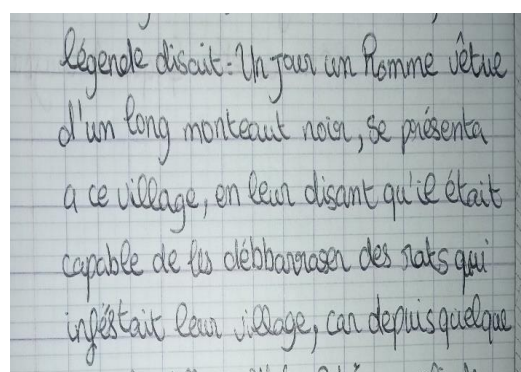 légende disait : Un jour un homme vêtue
d'un long monteaut noir, se présenta
a ce village, en leur disant qu'il était
capable de les débbarraser des rats qui
inféstait leur village, car depuis quelque